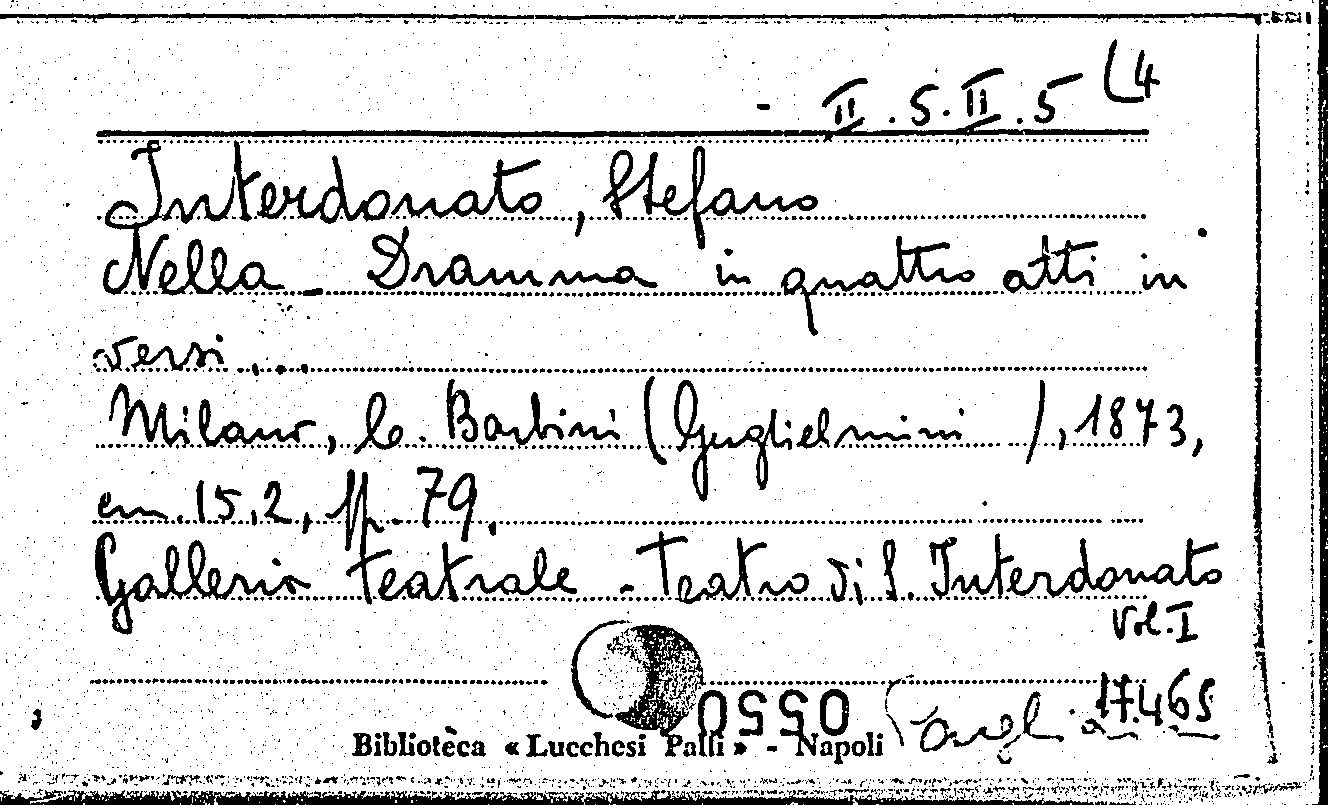 - II.S.II.5 (4
Interdonato, Stefano
Nella - Dramma in quattro atti in
versi ...
Milano, C. Barbini (Guglielmini ), 1873,
cm. 15,2, pp. 79.
Galleria teatrale - Teatro di S. Interdonato
Vol. I
17.465
0550
Biblioteca « Lucchesi Palli » - Napoli